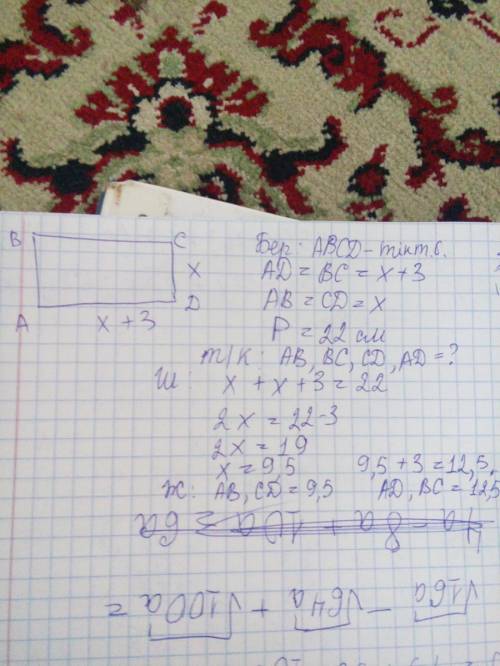 B C
x
A D
x + 3
Бер: ABCD – тікт.б.
AD = BC = x + 3
AB = CD = x
P = 22 см
Т/к: AB, BC, CD, AD = ?
Ш: x + x + 3 = 22
2x = 22-3
2x = 19
x = 9,5 9,5 + 3 = 12,5.
Ж: AB, CD = 9,5 AD, BC = 12,5
4a - 8a + 10a = 6a
√16a - √64a + √100a =